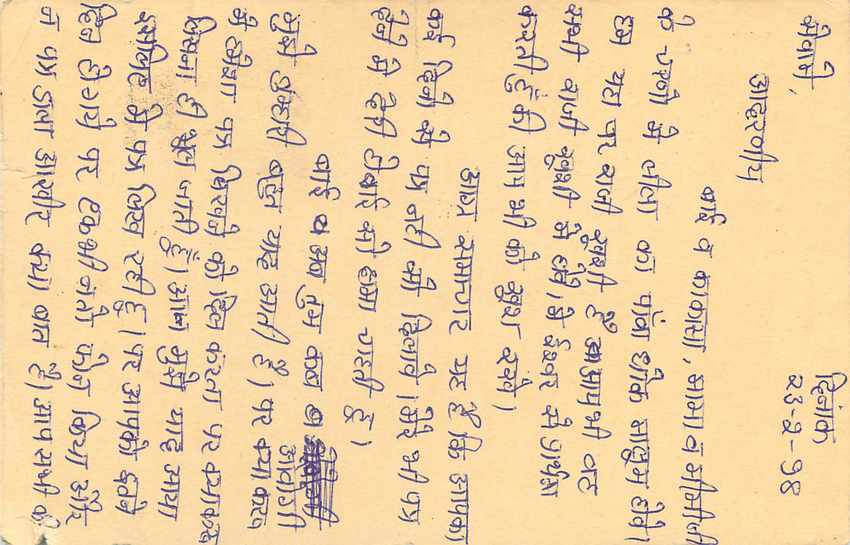 दिनांक
२३-२-98
सेवामे,
आदरणीय
बाई व काकासा, मामा व मौसीजी
के चरणो मे लीला का पांवा धोक मालुम होवे।
हम यहा पर राजी खुशी है आप भी वहा
सभी राजी खुशी मे होवे। मै ईश्वर से प्रार्थना
करती हुँ की आप भी को खुश रखे।
आगे समाचार यह है कि आपका
कई दिनो से पत्र नही सो दिलावे। और भी पत्र
देने मे देरी होवाई सो क्षमा चाहती हु।
बाई व अब तुम कब
आवोगी
मुझे तुम्हारी बहुत याद आती है, पर क्या करु
मै हमेशा पत्र लिखने को दिल करता पर क्या करु
लिखना ही भूल जाती हुँ। आज मुझे याद आया
इसलिए मै पत्र लिख रही हु। पर आपको इतने
दिन होगये पर एक भी नतो फोन किया और
न पत्र डाला आखीर क्या बात है। आप सभी की